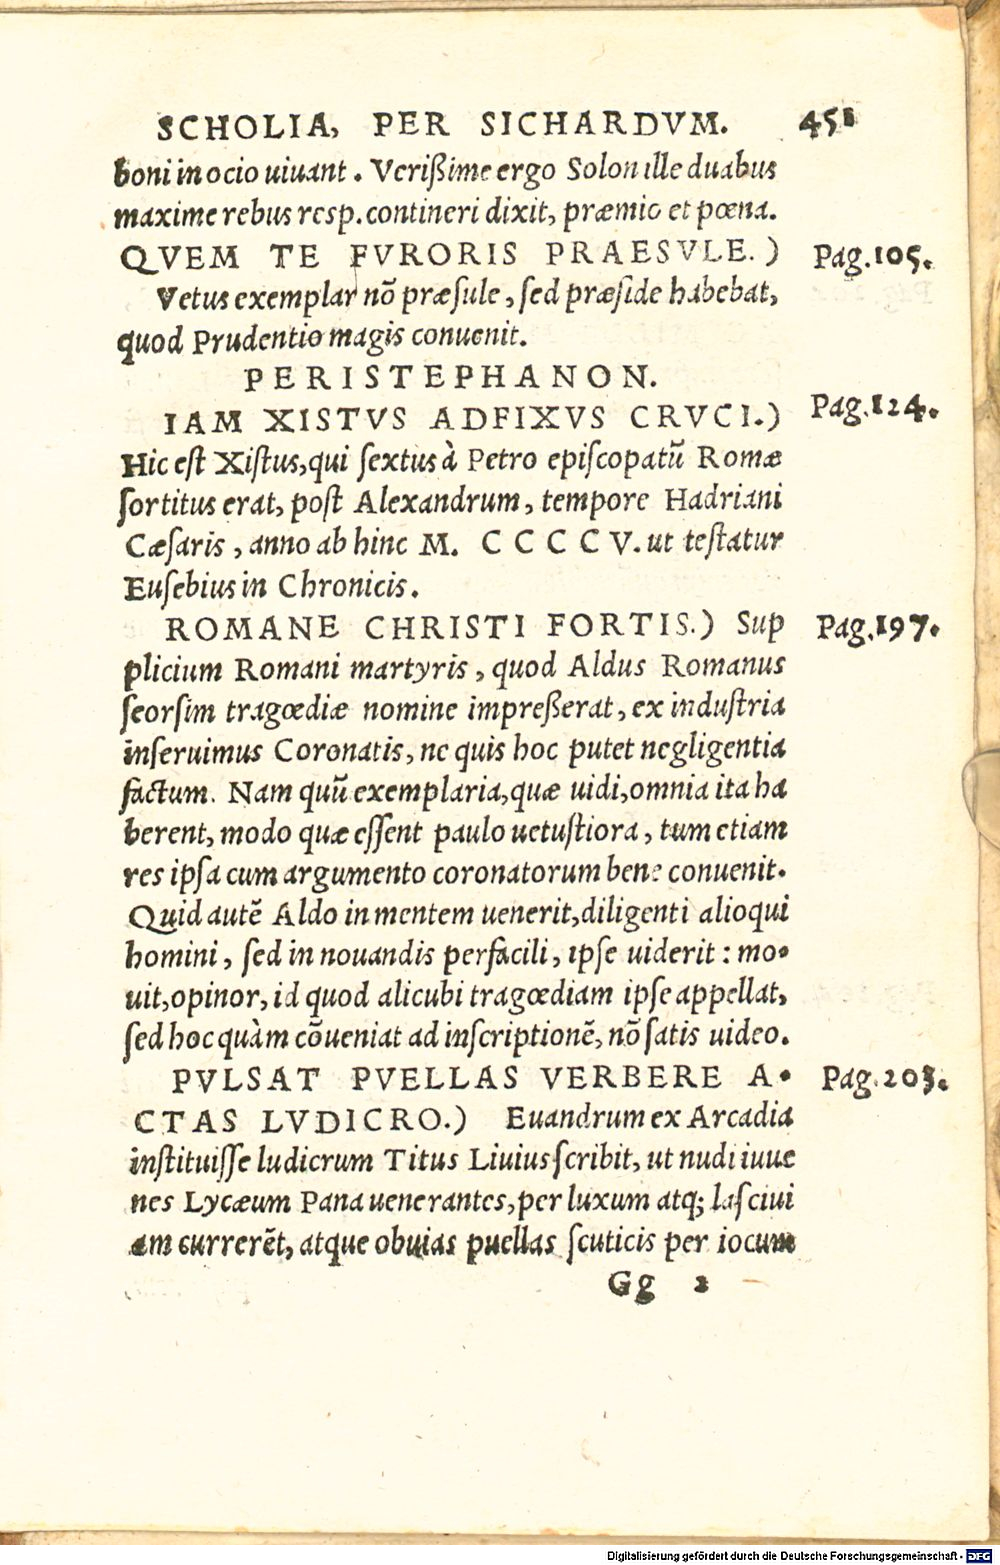 SCHOLIA, PER SICHARDVM. 451
boni in ocio uiuant. Verißime ergo Solon ille duabus
maxime rebus resp. contineri dixit, præmio et pœna.
QVEM TE FVRORIS PRAESVLE.) Pag.105.
Vetus exemplar nō præſule, ſed præſide habebat,
quod Prudentio magis conuenit.
PERISTEPHANON.
IAM XISTVS ADFIXVS CRVCI.) Pag.124.
Hic eſt Xiſtus, qui ſextus à Petro epiſcopatū Romæ
ſortitus erat, poſt Alexandrum, tempore Hadriani
Cæſaris, anno ab hinc M. C C C C V. ut teſtatur
Euſebius in Chronicis.
ROMANE CHRISTI FORTIS.) Sup Pag.197.
plicium Romani martyris, quod Aldus Romanus
ſeorſim tragœdiæ nomine impreßerat, ex induſtria
inſeruimus Coronatis, ne quis hoc putet negligentia
factum. Nam quū exemplaria, quæ uidi, omnia ita ha
berent, modo quæ eſſent paulo uetuſtiora, tum etiam
res ipſa cum argumento coronatorum bene conuenit.
Quid autē Aldo in mentem uenerit, diligenti alioqui
homini, ſed in nouandis perfacili, ipſe uiderit: mo-
uit, opinor, id quod alicubi tragœdiam ipſe appellat,
ſed hoc quàm cōueniat ad inſcriptionē, nō ſatis uideo.
PVLSAT PVELLAS VERBERE A- Pag.203.
CTAS LVDICRO.) Euandrum ex Arcadia
inſtituiſſe ludicrum Titus Liuius ſcribit, ut nudi iuue
nes Lycæum Pana uenerantes, per luxum atq; laſciui
am currerēt, atque obuias puellas ſcuticis per iocum
Gg 2
Digitalisierung gefördert durch die Deutsche Forschungsgemeinschaft - DFG